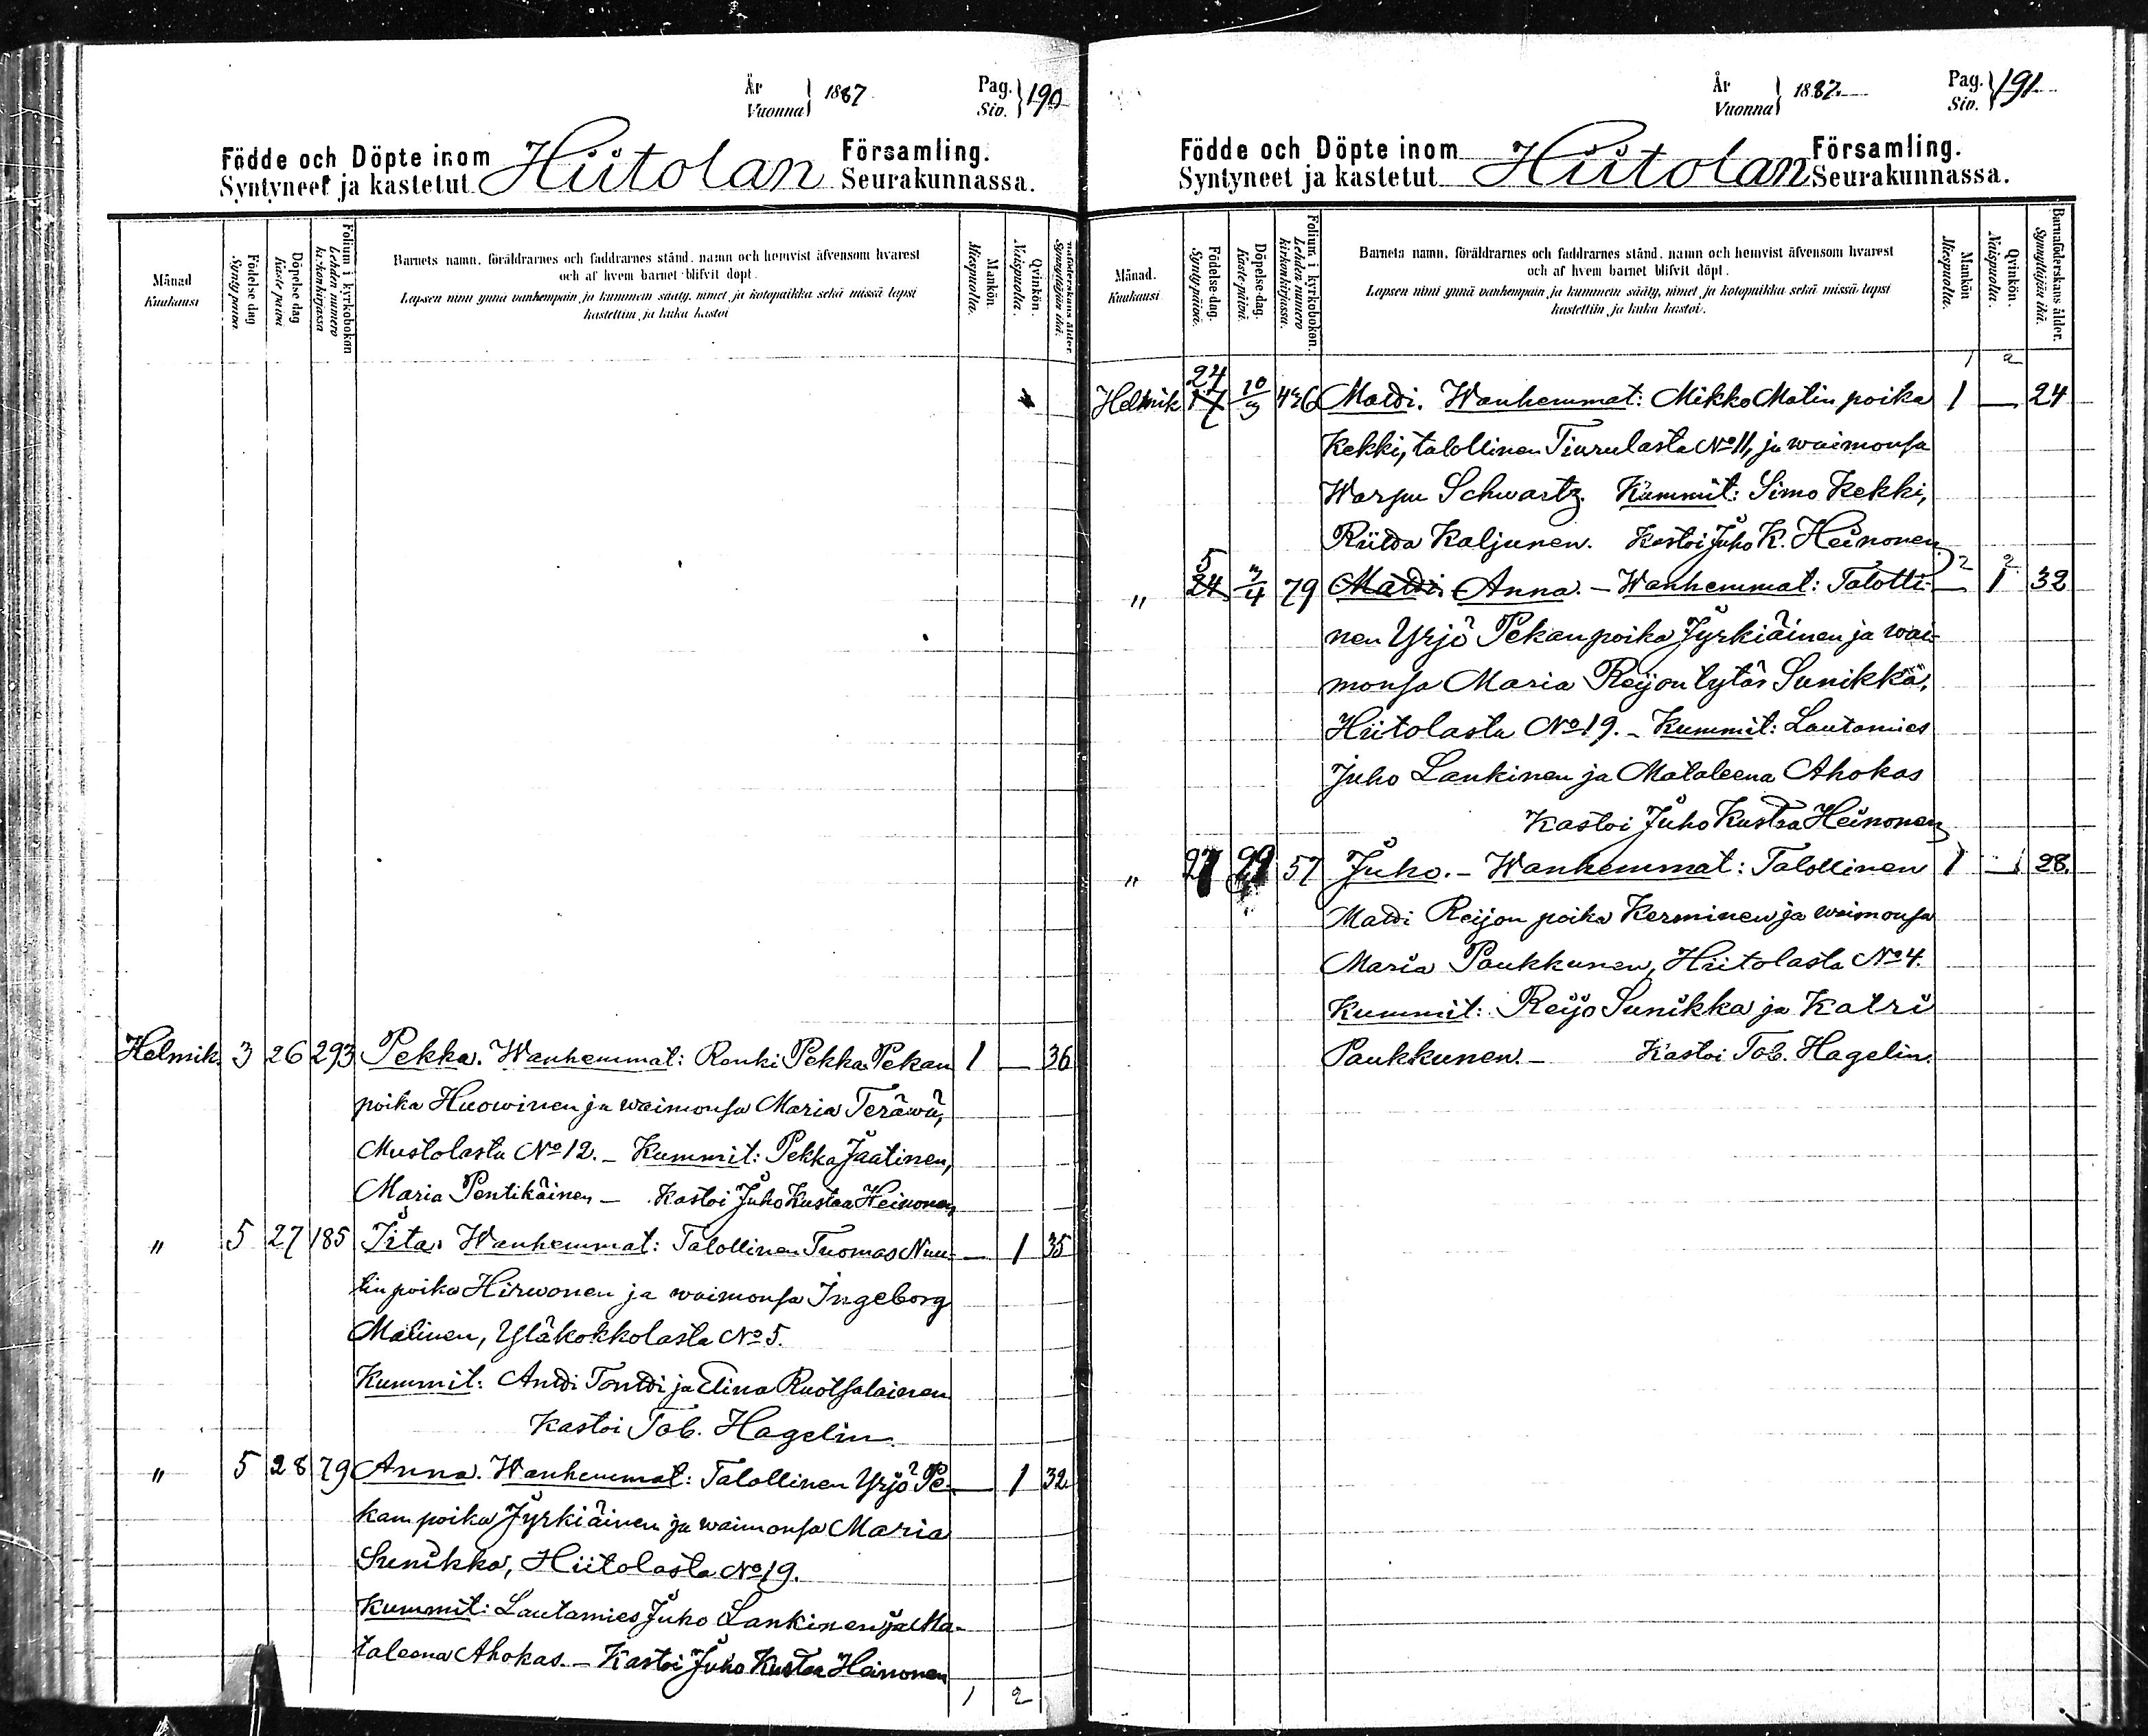 År Vuonna 1887 Pag. Siv. 190
Födde och Döpte inom Hiitolan Församling.
Syntyneet ja kastetut Seurakunnassa.
Månad Kuukausi
Födelse dag Syntypäivä
Döpelse dag Kaste päivä
Folium i kyrkoboken Lehden numero kirkonkirjassa
Barnets namn, föräldrarnes och faddrarnes stånd, namn och hemvist äfvensom hvarest
och af hvem barnet blifvit döpt.
Lapsen nimi ynnä vanhempain ja kummein sääty, nimet ja kotopaikka sekä missä lapsi
kastettiin ja kuka kastoi
Mankön. Miespuolta.
Qvinkön. Naispuolta.
Barnaföderskans ålder. Synnyttäjän ikä.
Helmik. 3 26 293 Pekka. Wanhemmat: Renki Pekka Pekan 1 — 36
poika Huowinen ja waimonsa Maria Teräwä,
Mustolasta No 12. – Kummit: Pekka Jaatinen,
Maria Pentikäinen – Kastoi Juho Kustaa Heinonen
" 5 27 185 Iita. Wanhemmat: Talollinen Tuomas Nuu- — 1 35
tin poika Hirwonen ja waimonsa Ingeborg
Malinen, Yläkokkolasta No 5.
Kummit: Antti Tontti ja Elina Ruotsalainen
Kastoi Tob. Hagelin.
" 5 28 79 Anna. Wanhemmat: Talollinen Yrjö Pe- — 1 32
kan poika Jyrkiäinen ja waimonsa Maria
Sunikka, Hiitolasta No 19.
Kummit: Lautamies Juho Lankinen ja Ma-
taleena Ahokas. – Kastoi Juho Kustaa Heinonen
1 2
År Vuonna 1887. Pag. Siv. 191
Födde och Döpte inom Hiitolan Församling.
Syntyneet ja kastetut Seurakunnassa.
Månad. Kuukausi
Födelse-dag. Syntypäivä.
Döpelse-dag. Kaste-päivä.
Folium i kyrkoboken. Lehden numero kirkonkirjassa.
Barnets namn, föräldrarnes och faddrarnes stånd, namn och hemvist äfvensom hvarest
och af hvem barnet blifvit döpt.
Lapsen nimi ynnä vanhempain ja kummein sääty, nimet ja kotopaikka sekä missä lapsi
kastettiin ja kuka kastoi.
Mankön Miespuolta.
Qvinkön. Naispuolta.
Barnaföderskans ålder. Synnyttäjän ikä.
1 2
24
Helmik 17 10/3 Matti. Wanhemmat: Mikko Matin poika 1 — 24
Kekki, talollinen Tiurulasta No 11, ja waimonsa
Warpu Schwartz. Kummit: Simo Kekki,
Riitta Kaljunen. Kastoi Juho K. Heinonen
5 2 2
" 24 3/4 79 Matti Anna. – Wanhemmat: Talolli- — 1 32
nen Yrjö Pekan poika Jyrkiäinen ja wai-
monsa Maria Reijon tytär Sunikka,
Hiitolasta No 19. – Kummit: Lautamies
Juho Lankinen ja Mataleena Ahokas
Kastoi Juho Kustaa Heinonen
" 27 57 Juho. – Wanhemmat: Talollinen 1 — 28.
Matti Reijon poika Kerminen ja waimonsa
Maria Paukkunen, Hiitolasta No 4.
Kummit: Reijo Sunikka ja Katri
Paukkunen. – Kastoi Tob. Hagelin.